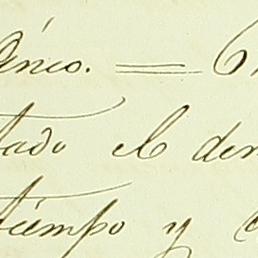 único. =
tado el den
tiempo y